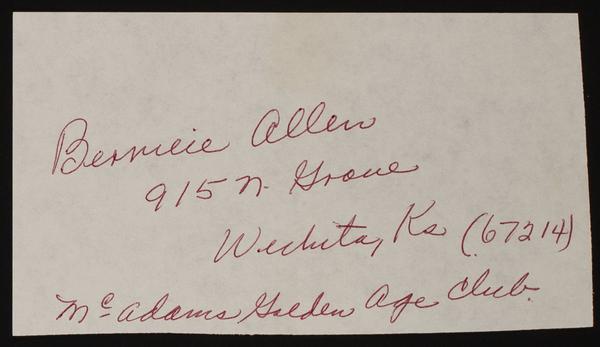 Bernieie Allen
915 N. Grove
Wichita, Ks (67214)
McAdams Golden Age Club.